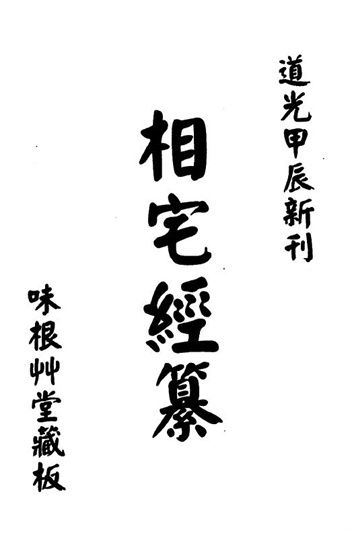 道光甲辰新刊
相宅經纂
味根艸堂藏板